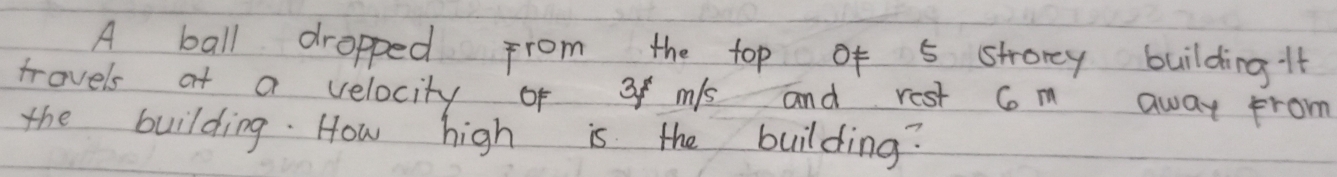 A ball dropped from the top of 5 strorey building. It
travels at a velocity of 3 m/s and rest 6 m away from
the building. How high is the building?